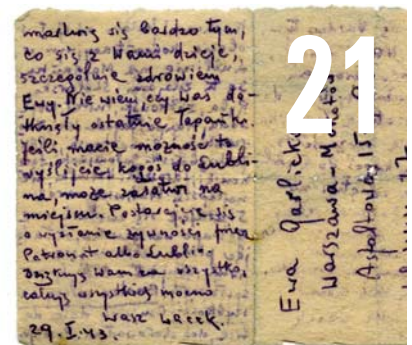 martwię się bardzo tym,
co się z Wami dzieje,
szczególnie zdrowiem
Ewy. Nie wiem, czy Was do-
tknęły ostatnie łapanki.
Jeśli macie możność to
wyślijcie kogoś do Lubli-
na, może załatwi na
miejscu. Postarajcie się
o wysłanie żywności przez
Patronat albo Lublin.
Dziękuję Wam za wszystko,
całuję wszystkich mocno
Wasz Wacek.
29.I.43.
21
Ewa Garlicka
Warszawa-Mokotów
Asfaltowa 15